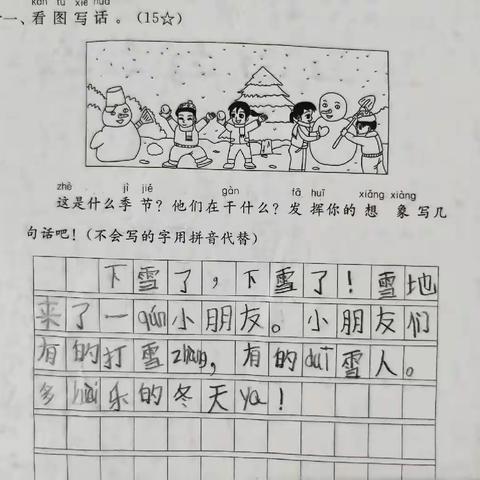 kàn tú xiě huà
一、看图写话。(15☆)
zhè jì jié gàn fā huī xiǎng xiàng
这是什么季节?他们在干什么?发挥你的想象写几
句话吧!(不会写的字用拼音代替)
下雪了,下雪了!雪地
来了一qún小朋友。小朋友们
有的打雪zhàng,有的duī雪人。
多kuài乐的冬天ya!